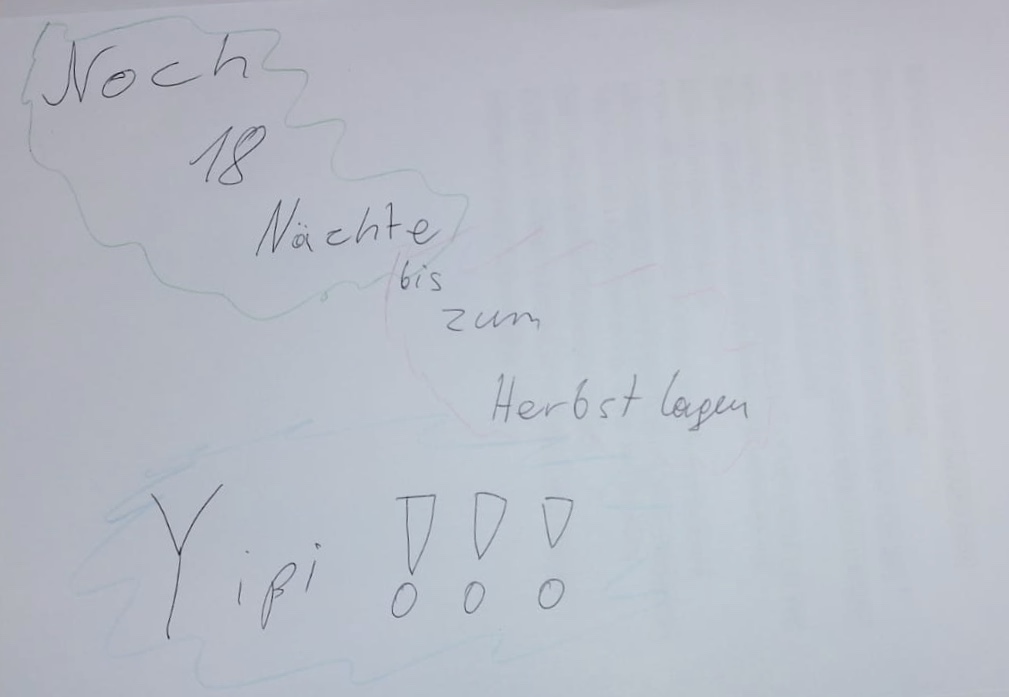 Noch
18
Nächte
bis
zum
Herbstlagen
Yipi !!!